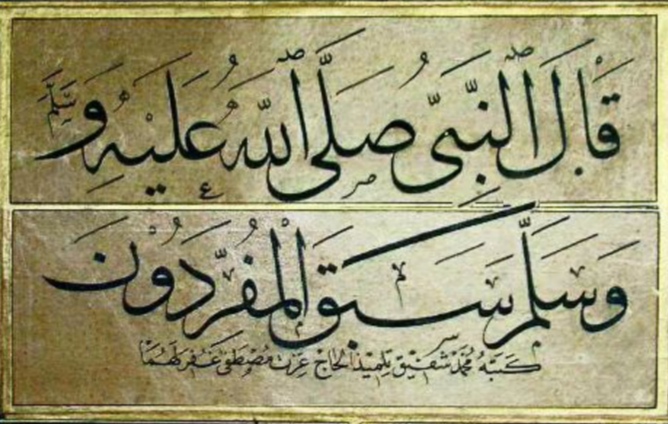 قَالَ النَّبِيُّ صَلَّى اللّٰهُ عَلَيْهِ وَ سَلَّمَ
وَسَلَّمَ سَبَقَ الْمُفَرِّدُونَ
كتبه محمد شفيق تلميذ الحاج عزت مصطفى غفر لهما